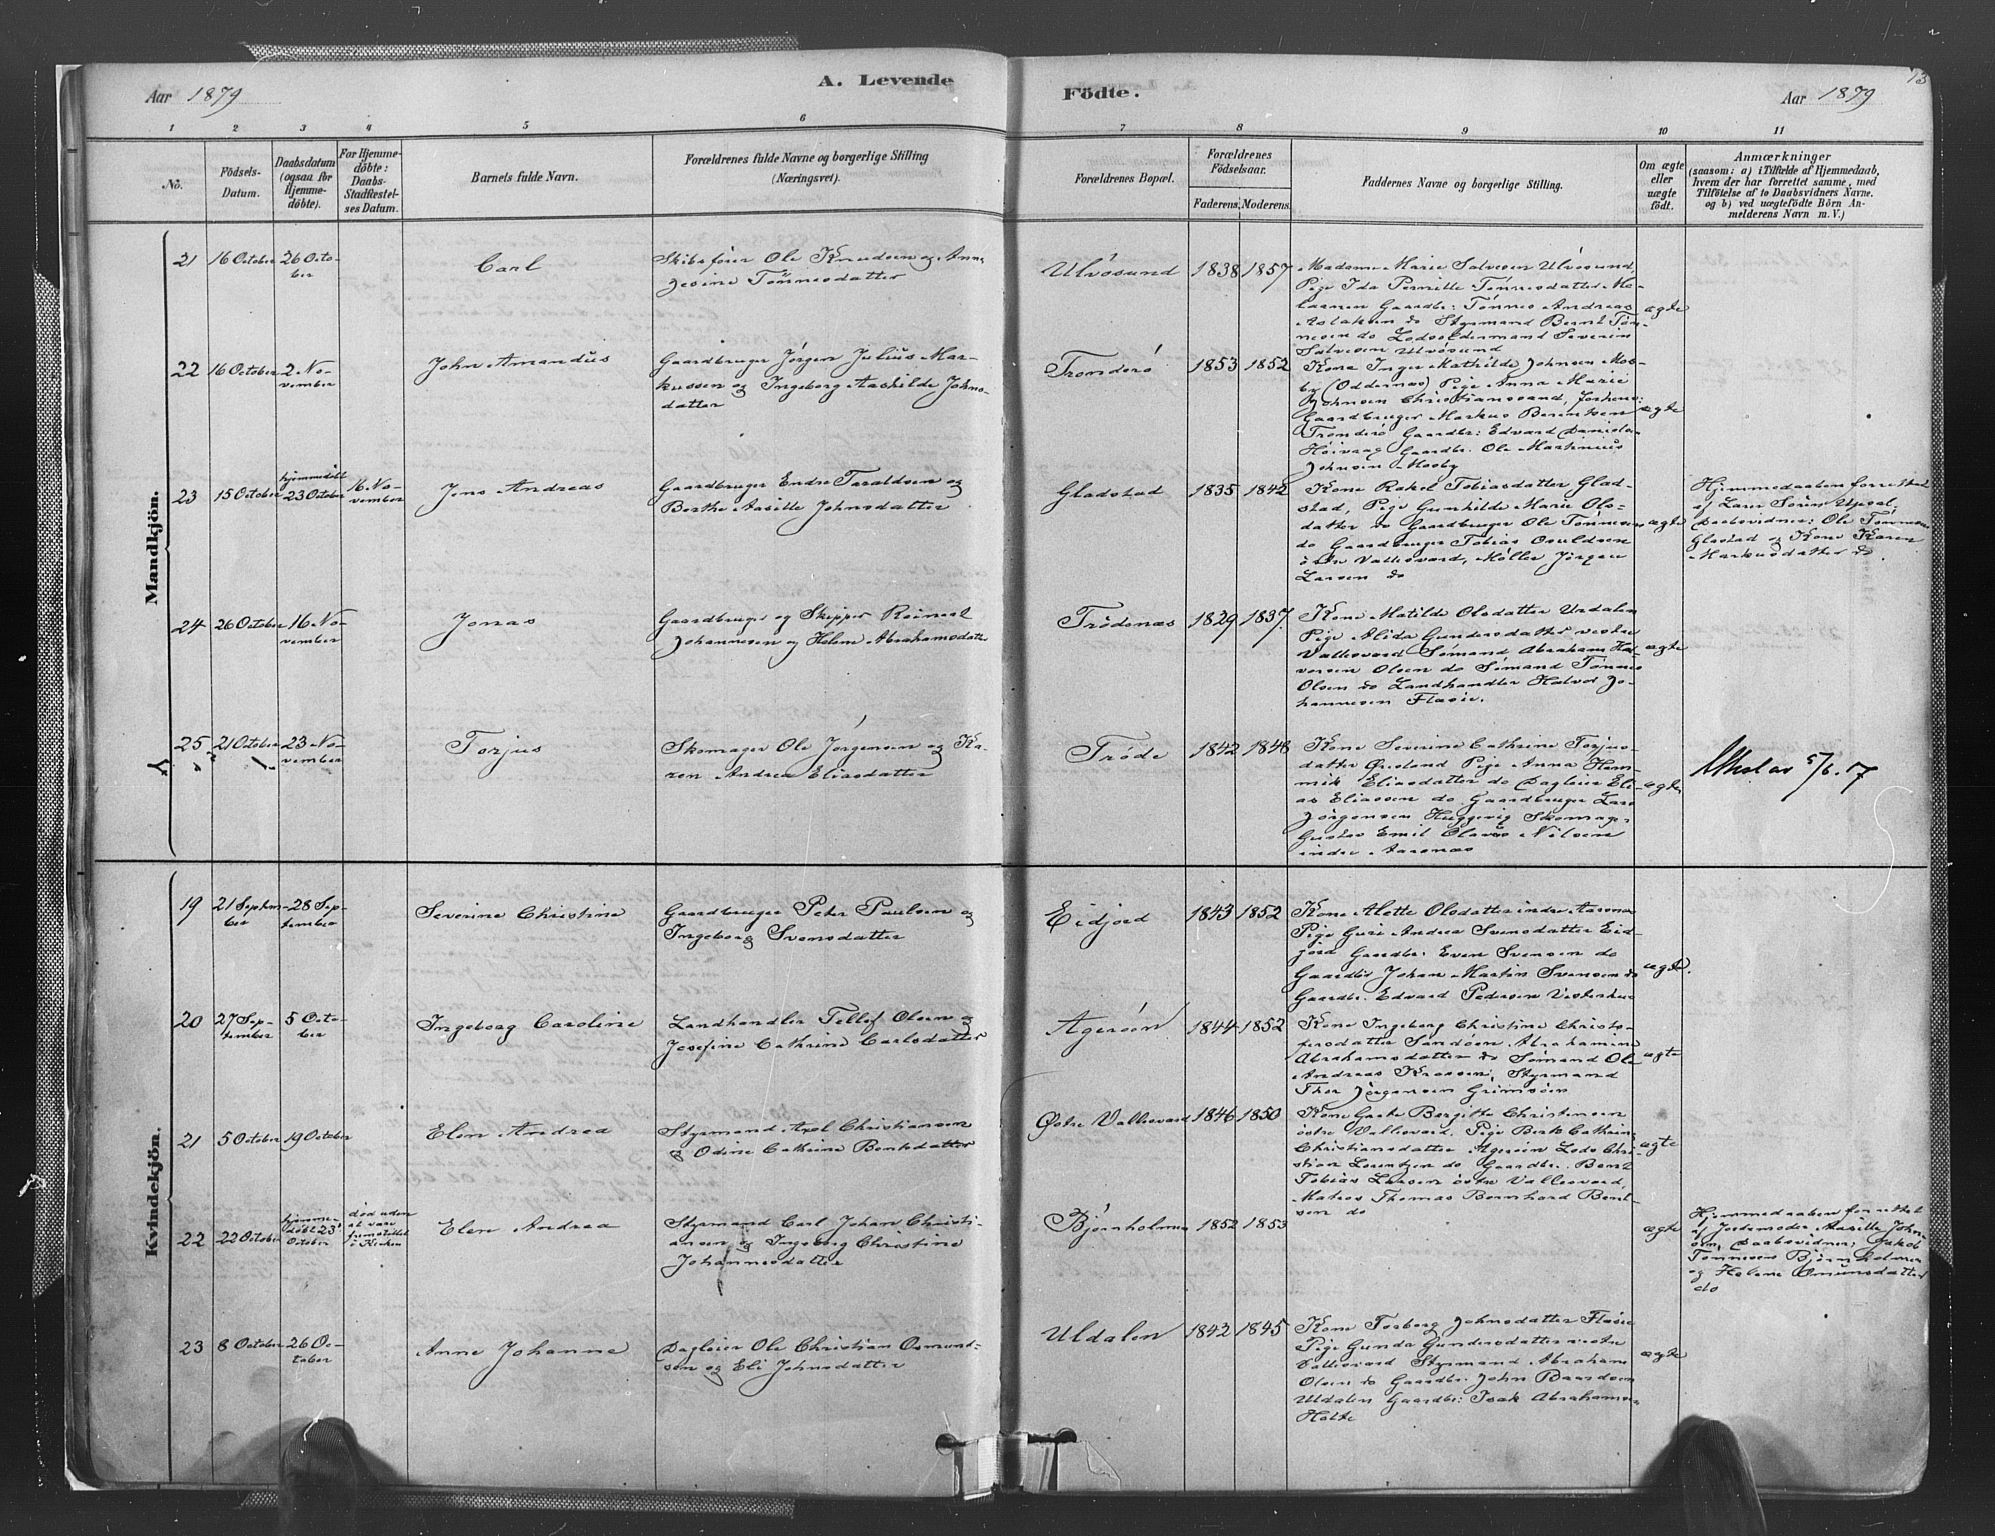 13
A. Levende Födte.
Aar 1879
Aar 1879
1 2 3 4 5 6 7 8 9 10 11
No.
Födsels-
Datum.
Daabsdatum
(ogsaa for
Hjemme-
döbte).
For Hjemme-
döbte:
Daabs-
Stadfæstel-
ses Datum.
Barnets fulde Navn.
Forældrenes fulde Navne og borgerlige Stilling
(Næringsvei).
Forældrenes Bopæl.
Forældrenes
Födselsaar.
Faderens. Moderens.
Faddernes Navne og borgerlige Stilling.
Om ægte
eller
uægte
født.
Anmærkninger
(saasom: a) i Tilfælde af Hjemmedaab,
hvem der har forrettet samme, med
Tilföielse af to Daabsvidners Navne.
og b) ved uægtefödte Börn An-
melderens Navn m. V.)
Mandkjön.
21
16 October
26 Octo-
ber
Carl
Skibsfører Ole Knudsen og Anne
Jesine Tønnesdatter
Ulvøsund
1838
1857
Madame Marie Salvesen Ulvøsund,
Pige Ida Pernille Tønnesdatter
Gaardbr: Tønnes Andreas
Aslaksen do Styrmand Bernt Tøn-
nesen do Lodsoldermand Severin
Salvesen Ulvøsund
ægte
22
16 October
2 No-
vember
John Amandus
Gaardbruger Jørgen Julius Mar-
kussen og Ingeborg Aashilde Johns-
datter
Trønderö
1853
1852
Kone Inger Mathilde Johnsen Mos-
by (Oddernæs) Pige Anna Marie
Johnsen Christianssand,
Gaardbruger Markus Berentsen
Trønderö Gaardbr: Edvard Daniels
Høivaag Gaardbr. Ole Martinius
Johnsen Mosby
ægte
23
15 October
hjemmedöbt
23 October
16 No-
vember
Jens Andreas
Gaardbruger Endre Taraldsen og
Berthe Aasille Johnsdatter
Gladstad
1835
1842
Kone Rakel Tobiasdatter Glad-
stad, Pige Gunhilde Marie Ols-
datter do Gaardbruger Ole Tønnesen
do Gaardbruger Tobias Osuldsen
östre Vallesværd, Møller Jørgen
Larsen do
ægte
Hjemmedaaben forrettet
af Lærer Sören Upsal
Daabsvidner: Ole Tønnesen
Glastad og Kone Karen
Markusdatter do
24
26 October
16 No-
vember
Jonas
Gaardbruger og Skipper Reinert
Johannesen og Helene Abrahamsdatter
Trødenæs
1829
1837.
Kone Matilde Olsdatter Urdalen
Pige Alida Gundersdatter vestre
Vallesværd Sømand Abraham Hal-
vorsen Olsen do Sømand Tønnes
Olsen do Landhandler Halvor Jo-
hannesen Flasie.
ægte
25
21 October
23 No-
vember
Torjus
Skomager Ole Jørgensen og Ka-
ren Andrea Eliasdatter
Trøde
1842
1848
Kone Severine Cathrine Torjus-
datter Pige Anna Hen-
rik Eliasdatter do Dagleier Eli-
as Eliassen do Gaardbruger Lars
Jörgensen Huggevig Skomager
Gustav Emil Olavus Nilsen
indre Aasenæs
ægte
5/6.17
Kvindekjön.
19
21 Septem-
ber
28 Sep-
tember
Severine Christine
Gaardbruger Peter Paulsen og
Ingeborg Svensdatter
Eidjord
1843
1852
Kone Alette Olsdatter indre Aasenæs
Pige Guri Andrea Svensdatter Eid-
jord Gaardbr: Even Svensen do
Gaardbr Johan Martin Svensen do
Gaardbr. Edvard Pedersen Vesterhus
ægte.
20
27 Sep-
tember
5 Octo-
ber
Ingeborg Caroline
Landhandler Tellef Olsen og
Josefine Cathrine Carlsdatter
Agerøen
1844
1852
Kone Ingeborg Christine Christo-
fersdatter Sandøen. Abrahamine
Abrahamsdatter do Sømand Ole
Andreas Styrmand
Thor Jørgensen Grimsøen
ægte
21
5 October
19 October
Elen Andrea
Styrmand Axel Christiansen
& Odine Cathrine Bentsdatter
Østre Vallesværd
1846
1850
Kone Grete Bergitte Christensen
östre Vallesværd. Pige Cathrine
Christiansdatter Agerøen Lods Chri-
stian Lorentzen do Gaardbr. Bent
Tobias Larsen östre Vallesværd,
Matros Thomas Bernhard Bent-
sen do
ægte
22
22 October
hjemme-
döbt 23'
October
död uden
at være
fremstillet
i Kirken
Elen Andrea
Styrmand Carl Johan Christi-
ansen og Ingeborg Christine
Johannesdatter
Bjørnholmen
1852
1853
ægte
Hjemmedaaben forrettet
af Jordemoder Aasille John-
sen, Daabsvidner: Jakob
Tønnesen Bjørnholmen
og Helene Omunsdatter
do
23
8 October
26 Oc-
tober
Anne Johanne
Dagleier Ole Christian Osmund-
sen og Eli Johnsdatter
Uldalen
1842
1845
Kone Torborg Johnsdatter Flasie
Pige Gunda Gundersdatter vestre
Vallesværd Styrmand Abraham
Olsen do Gaardbr. John Baardsen
Uldalen Gaardbr: Isak Abrahamsen
Holte
ægte